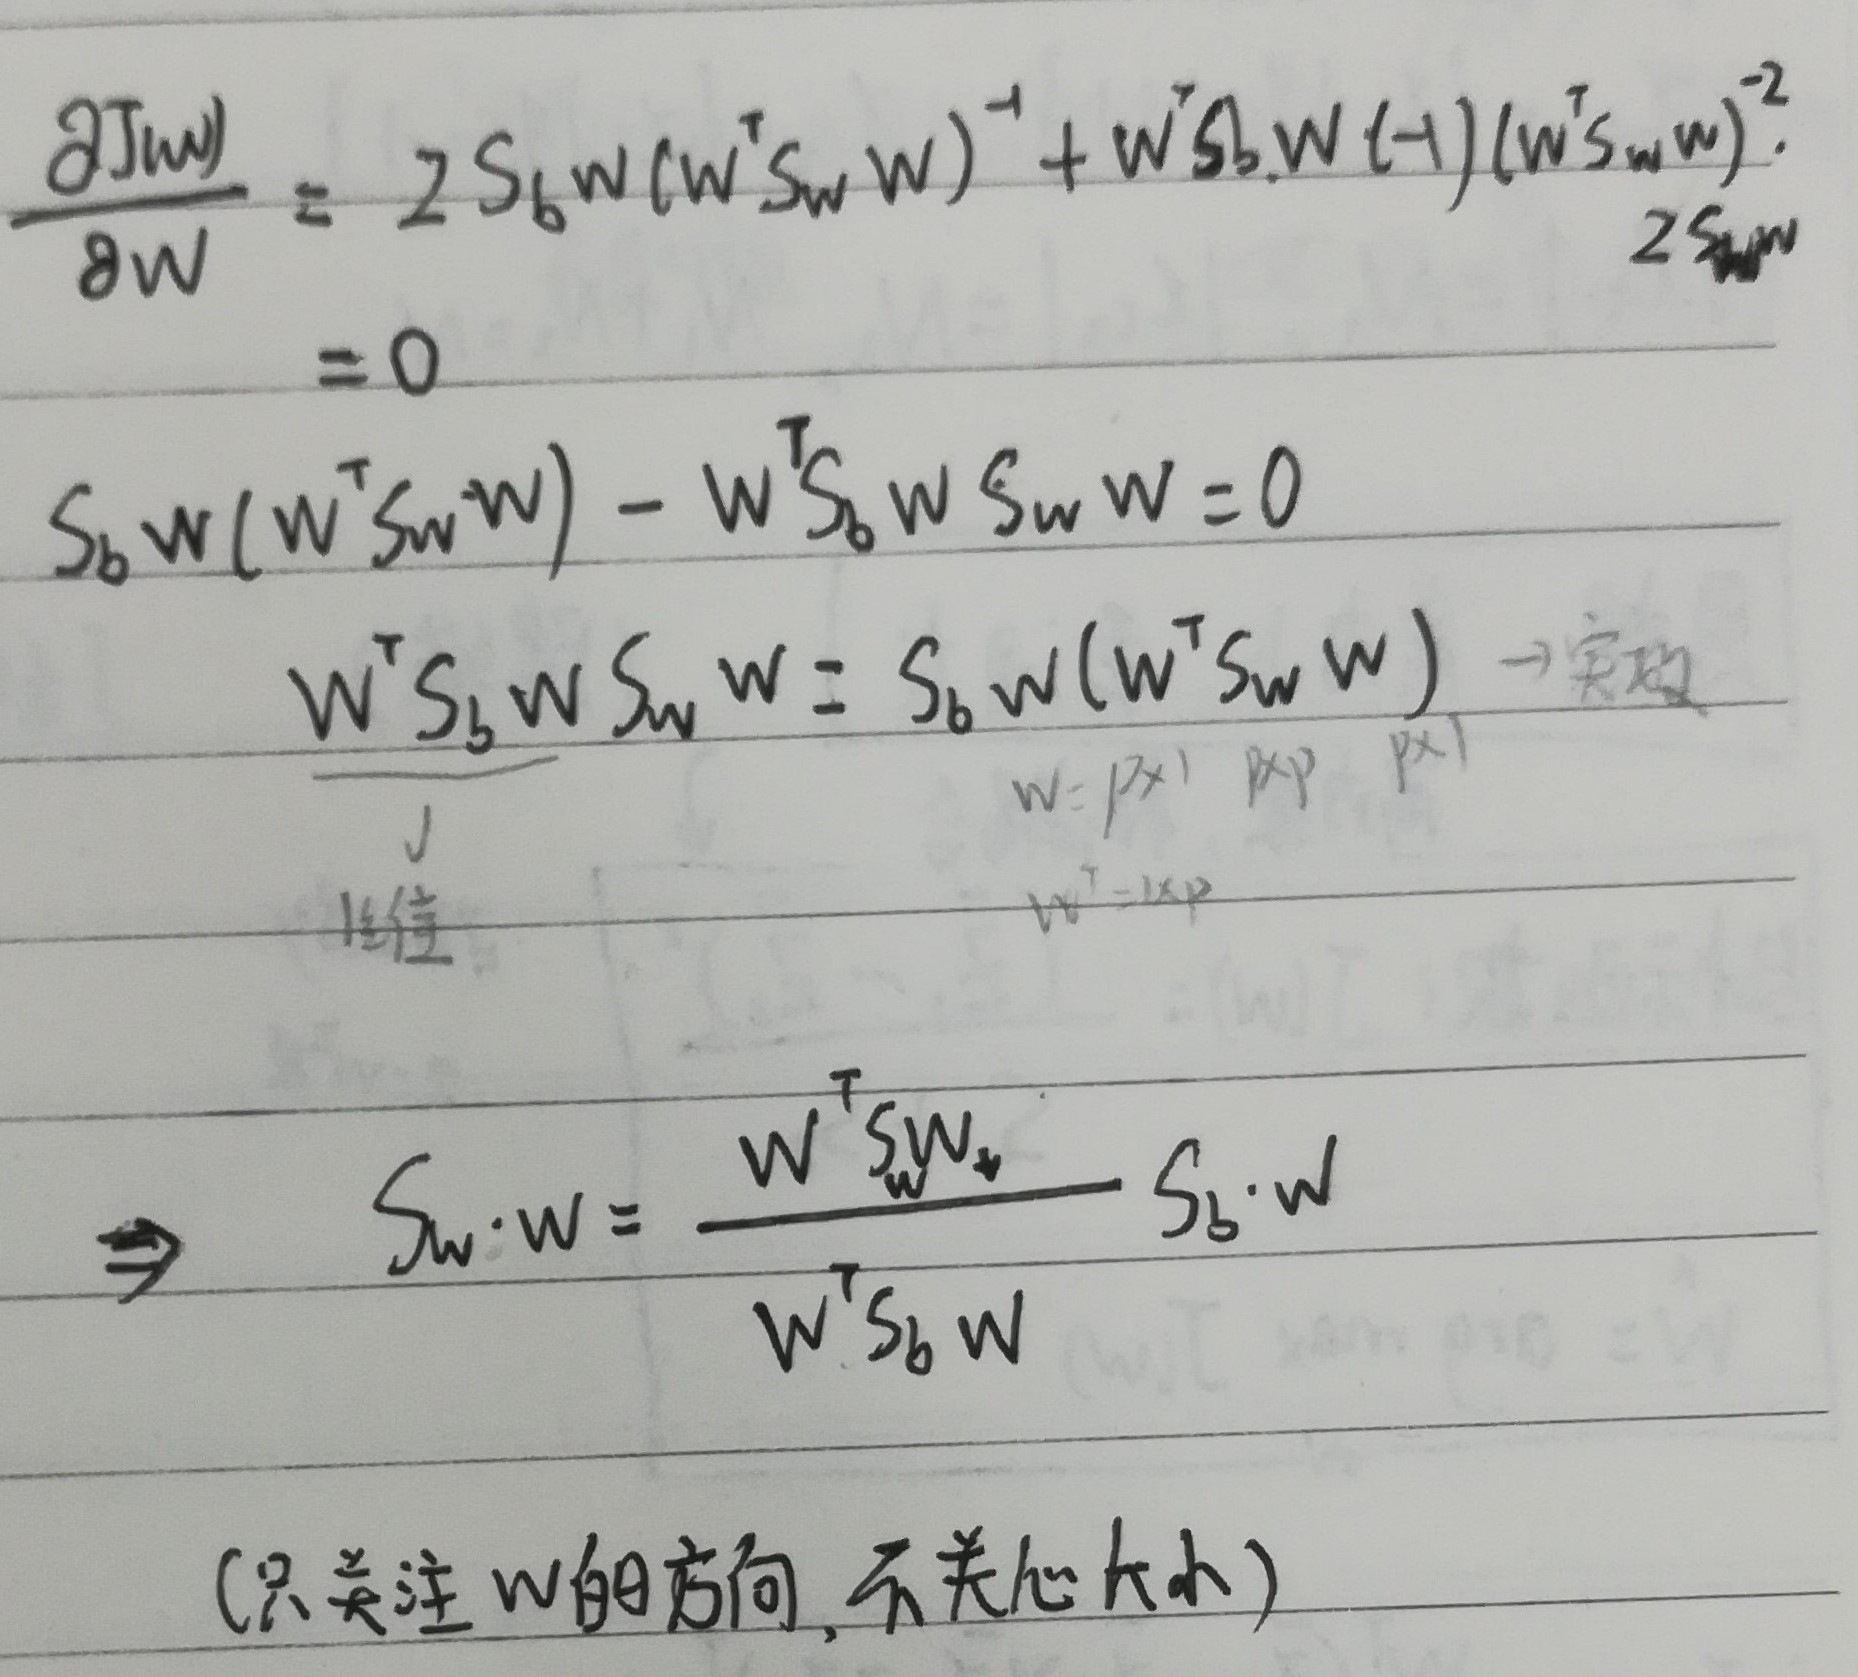 ∂J(w)/∂w = 2S_b w(w^T S_w w)^{-1} + w^T S_b w(-1)(w^T S_w w)^{-2}·
2S_w w
= 0
S_b w(w^T S_w w) - w^T S_b w S_w w = 0
w^T S_b w S_w w = S_b w(w^T S_w w) → 实数
w = p×1 p×p p×1
w^T = 1×p
⇒ S_w·w = (w^T S_w w)/(w^T S_b w) S_b·w
(只关注w的方向,不关心大小)